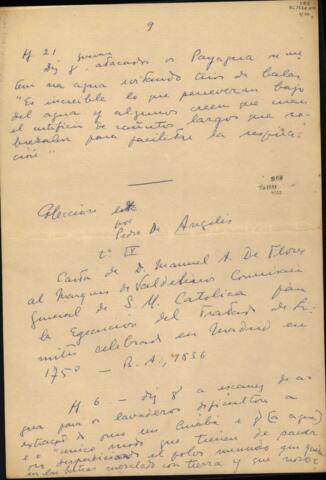 9
# 21
diz q. atacados os Payagua se me-
tem na agua evitando tiros de balas
"Es increible lo que perseveran bajo
del agua y algunos creen que usan
el artificio de cañutos largos que so-
bresalen para facilitarse la respira-
ción"
Coleccion
por
Pedro De Angelis
tº IV
Carta de D. Manuel A. De Flores
al Marques de Valdelirios Comisario
General de S. M. Catolica para
la Egecucion del Tratado de Li-
mites celebrado en Madrid en
1750 — B. A., 1836
# 6 — diz q a escassez de a-
gua para os lavaderos dificultou a
extração de ouro em Cuiabá e q (a agua)
é o "unico modo que tienen de sacar
en las betas mezclado con tierra y que no se